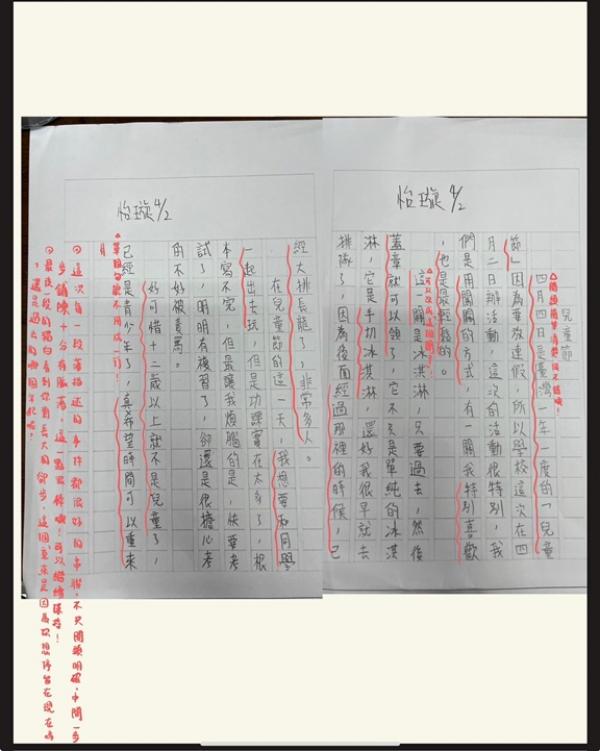 怡璇 4/2
兒童節
四月四日是臺灣一年一度的「兒童
節」因為要放連假，所以學校這次在四
月二日辦活動，這次的活動很特別，我
們是用闖關的方式，有一關我特別喜歡
，也是最輕鬆的。
這一關是冰淇淋，只要過去，然後
蓋章就可以領了，它不只是單純的冰淇
淋，它是手切冰淇淋，還好我很早就去
排隊了，因為後面經過那裡的時候，已
怡璇 4/2
經大排長龍了，非常多人。
在兒童節的這一天，我想要和同學
一起出去玩，但是功課實在太多了，根
本寫不完，但最讓我煩腦的是，快要考
試了，明明有複習了，卻還是很擔心考
的不好被責罵。
好可惜十二歲以上就不是兒童了，
已經是青少年了，真希望時間可以重來
△單獨句號不用成一行！
◎這次每一段落描述的事件都很好的串聯，不只開頭明確，中間一步
步鋪陳十分有脈落，這一點很棒哦！可以繼續保持！
◎最後一段的獨白看到你對長大的卻步，這個意象是因為你想停留在現在嗎
，還是過去的哪個年紀呢？